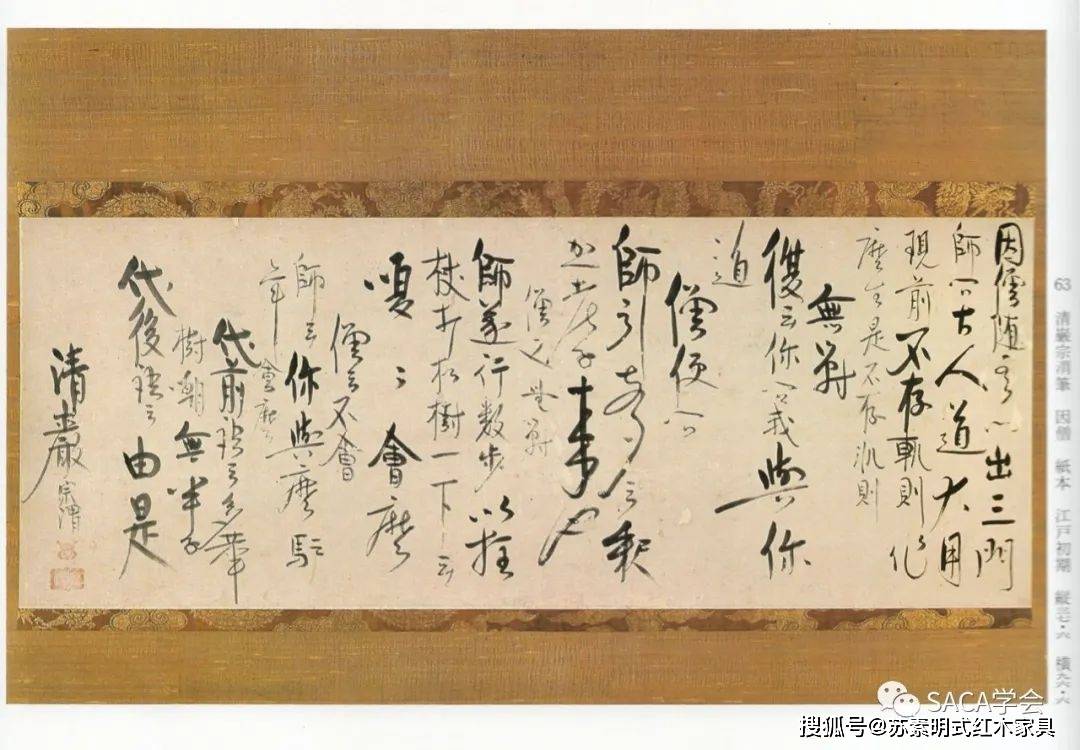 因僧随出三門
師問古人道大用
現前不存軌則作
麼生是不存軌則
無對
復云你問我與你
道
僧便問
師引聲云釈
迦老子来也
僧又無對
師遂行数步以拄
杖打松樹一下云
嗄々會麼
僧云不會
師云你與麼驢
年會麼
代前語云
樹無半子
代後語云由是
清巌宗渭
63 清巌宗渭筆 因僧 紙本 江戸初期 縦三七・六 横九六・六
SACA学会
搜狐号@苏素明式红木家具